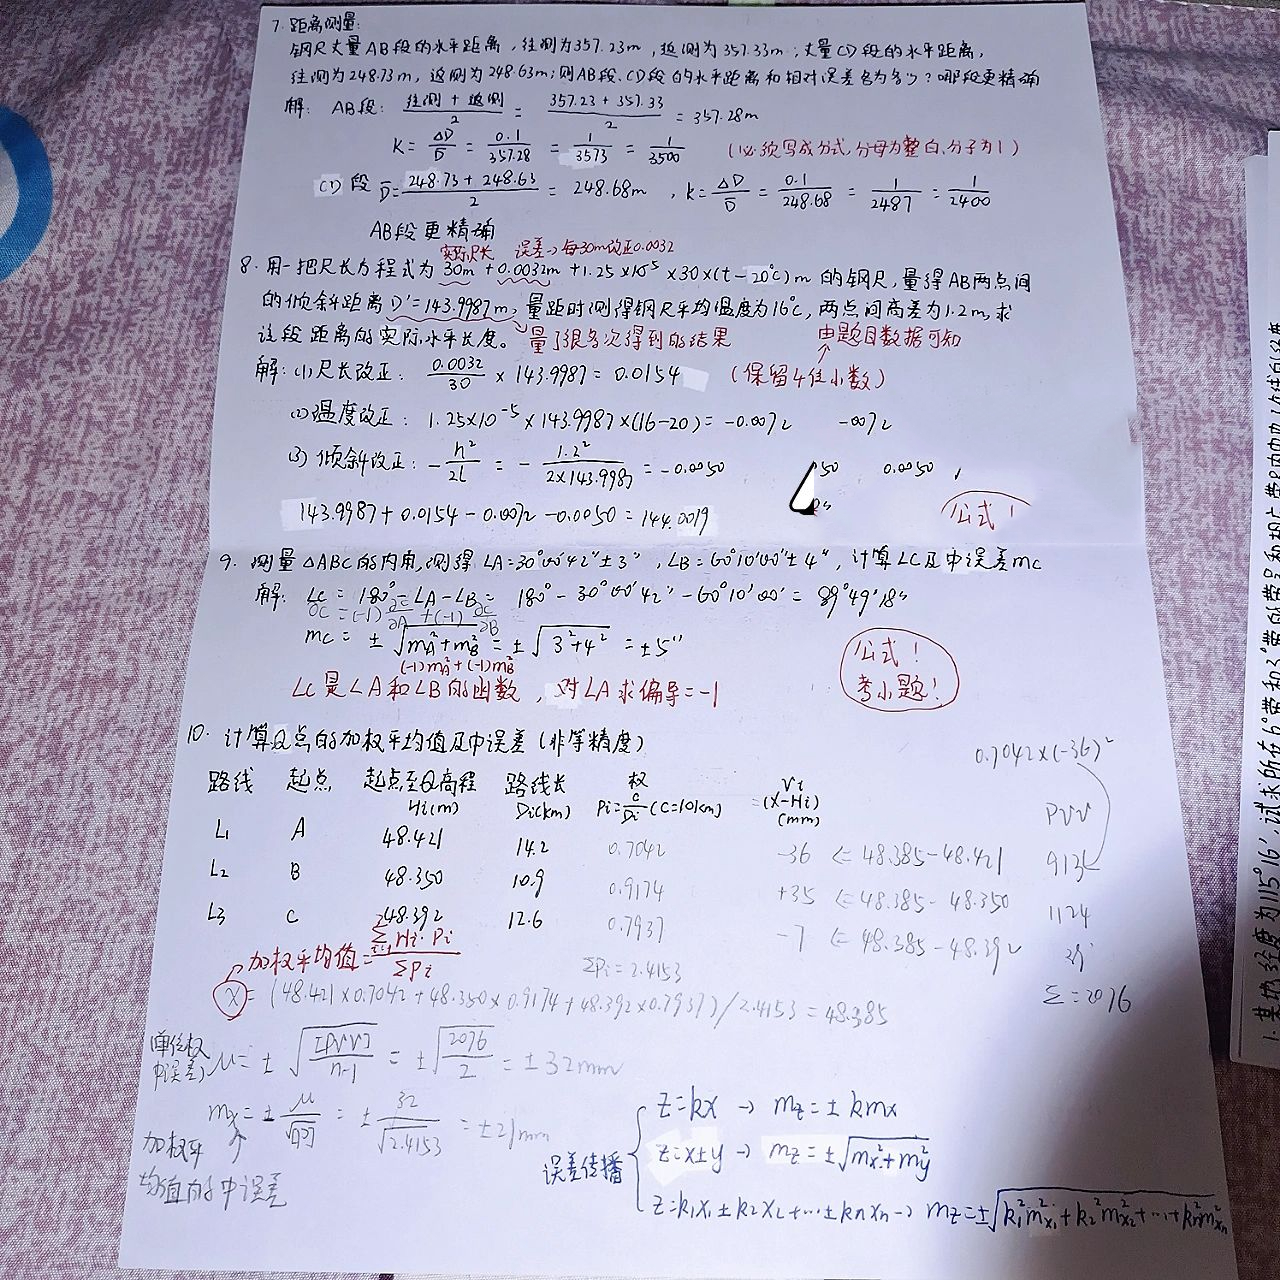 7. 距离测量:
钢尺丈量AB段的水平距离，往测为357.23m，返测为357.33m；丈量CD段的水平距离，
往测为248.73m，返测为248.63m；则AB段、CD段的水平距离和相对误差各为多少？哪段更精确
解： AB段： (往测+返测)/2 = (357.23+357.33)/2 = 357.28m
K = ΔD/D̅ = 0.1/357.28 = 1/3573 = 1/3500 （必须写成分式，分母为整百、分子为1）
CD段 D̅ = (248.73+248.63)/2 = 248.68m ，K = ΔD/D̅ = 0.1/248.68 = 1/2487 = 1/2400
AB段更精确
实际尺长 误差→每30m改正0.0032
8. 用一把尺长方程式为 30m+0.0032m+1.25×10⁻⁵×30×(t-20℃)m 的钢尺，量得AB两点间
的倾斜距离 D'=143.9987m，量距时测得钢尺平均温度为16℃，两点间高差为1.2m，求
该段距离的实际水平长度。 量了很多次得到的结果 由题目数据可知
解：(1)尺长改正： 0.0032/30 × 143.9987 = 0.0154 （保留4位小数）
(2)温度改正：1.25×10⁻⁵×143.9987×(16-20) = -0.0072 -0072
(3)倾斜改正：-h²/2L = -1.2²/(2×143.9987) = -0.0050 50 0.0050
143.9987+0.0154-0.0072-0.0050=144.0019 公式！
9. 测量△ABC的内角，测得∠A=30°00'42"±3"，∠B=60°10'00"±4"，计算∠C及中误差mc
解： ∠C = 180°-∠A-∠B = 180°-30°00'42"-60°10'00" = 89°49'18"
∂C = (-1)∂C/∂A + (-1)∂C/∂B
mc = ±√(m²A+m²B) = ±√(3²+4²) = ±5"
(-1)m²A+(-1)m²B
公式！
考小题！
∠C是∠A和∠B的函数，对∠A求偏导=-1
10. 计算Q点的加权平均值及中误差（非等精度）
0.7042×(-36)²
路线 起点 起点至Q高程 Hi(m) 路线长 Di(km) 权 Pi=C/Di (C=10km) Vi =(X-Hi) (mm) PVV
L1 A 48.421 14.2 0.7042 -36 ⇐ 48.385-48.421 913
L2 B 48.350 10.9 0.9174 +35 ⇐ 48.385-48.350 1124
L3 C 48.392 12.6 0.7937 -7 ⇐ 48.385-48.392 39
加权平均值 = ΣHi·Pi/ΣPi ΣPi=2.4153 Σ=2076
X = (48.421×0.7042+48.350×0.9174+48.392×0.7937)/2.4153=48.385
(单位权中误差) μ = ±√([PVV]/(n-1)) = ±√(2076/2) = ±32mm
mx = ±μ/√[P] = ±32/√2.4153 = ±21mm
加权平
均值的中误差
误差传播
z=kx → mz=±kmx
z=x±y → mz=±√(mx²+my²)
z=k1x1±k2x2+…±knxn → mz=±√(k1²m²x1+k2²m²x2+…+kn²m²xn)